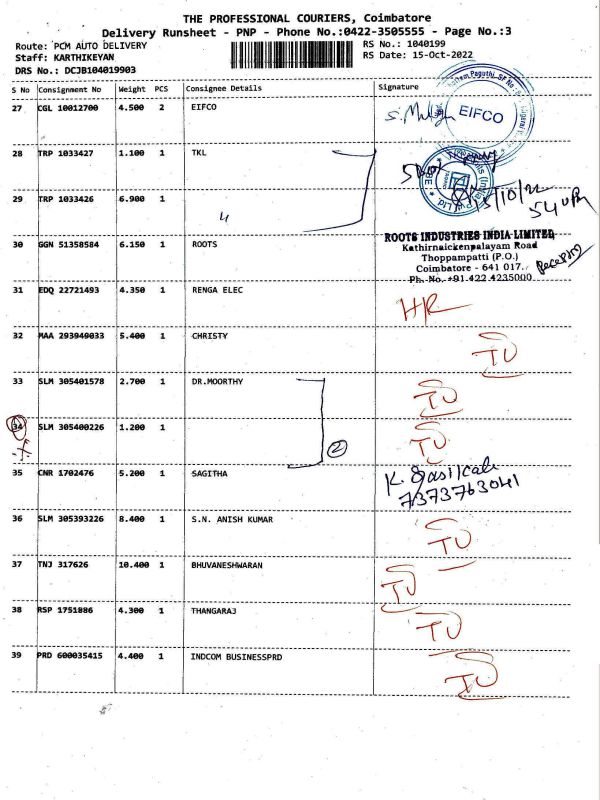 THE PROFESSIONAL COURIERS, Coimbatore
Delivery Runsheet - PNP - Phone No.:0422-3505555 - Page No.:3
Route: PCM AUTO DELIVERY
Staff: KARTHIKEYAN
DRS No.: DCJB104019903
RS No.: 1040199
RS Date: 15-Oct-2022
S No Consignment No Weight PCS Consignee Details Signature
27 CGL 10012700 4.500 2 EIFCO
EIFCO
28 TRP 1033427 1.100 1 TKL
29 TRP 1033426 6.900 1
15/10/22
30 GGN 51358584 6.150 1 ROOTS
ROOTS INDUSTRIES INDIA LIMITED
Kathirnaickenpalayam Road
Thoppampatti (P.O.)
Coimbatore - 641 017.
Ph. No. +91.422.4235000
31 EDQ 22721493 4.350 1 RENGA ELEC
32 MAA 293949033 5.400 1 CHRISTY
33 SLM 305401578 2.700 1 DR.MOORTHY
34 SLM 305400226 1.200 1
2
35 CNR 1702476 5.200 1 SAGITHA
7373763041
36 SLM 305393226 8.400 1 S.N. ANISH KUMAR
37 TNJ 317626 10.400 1 BHUVANESHWARAN
38 RSP 1751886 4.300 1 THANGARAJ
39 PRD 600035415 4.400 1 INDCOM BUSINESSPRD